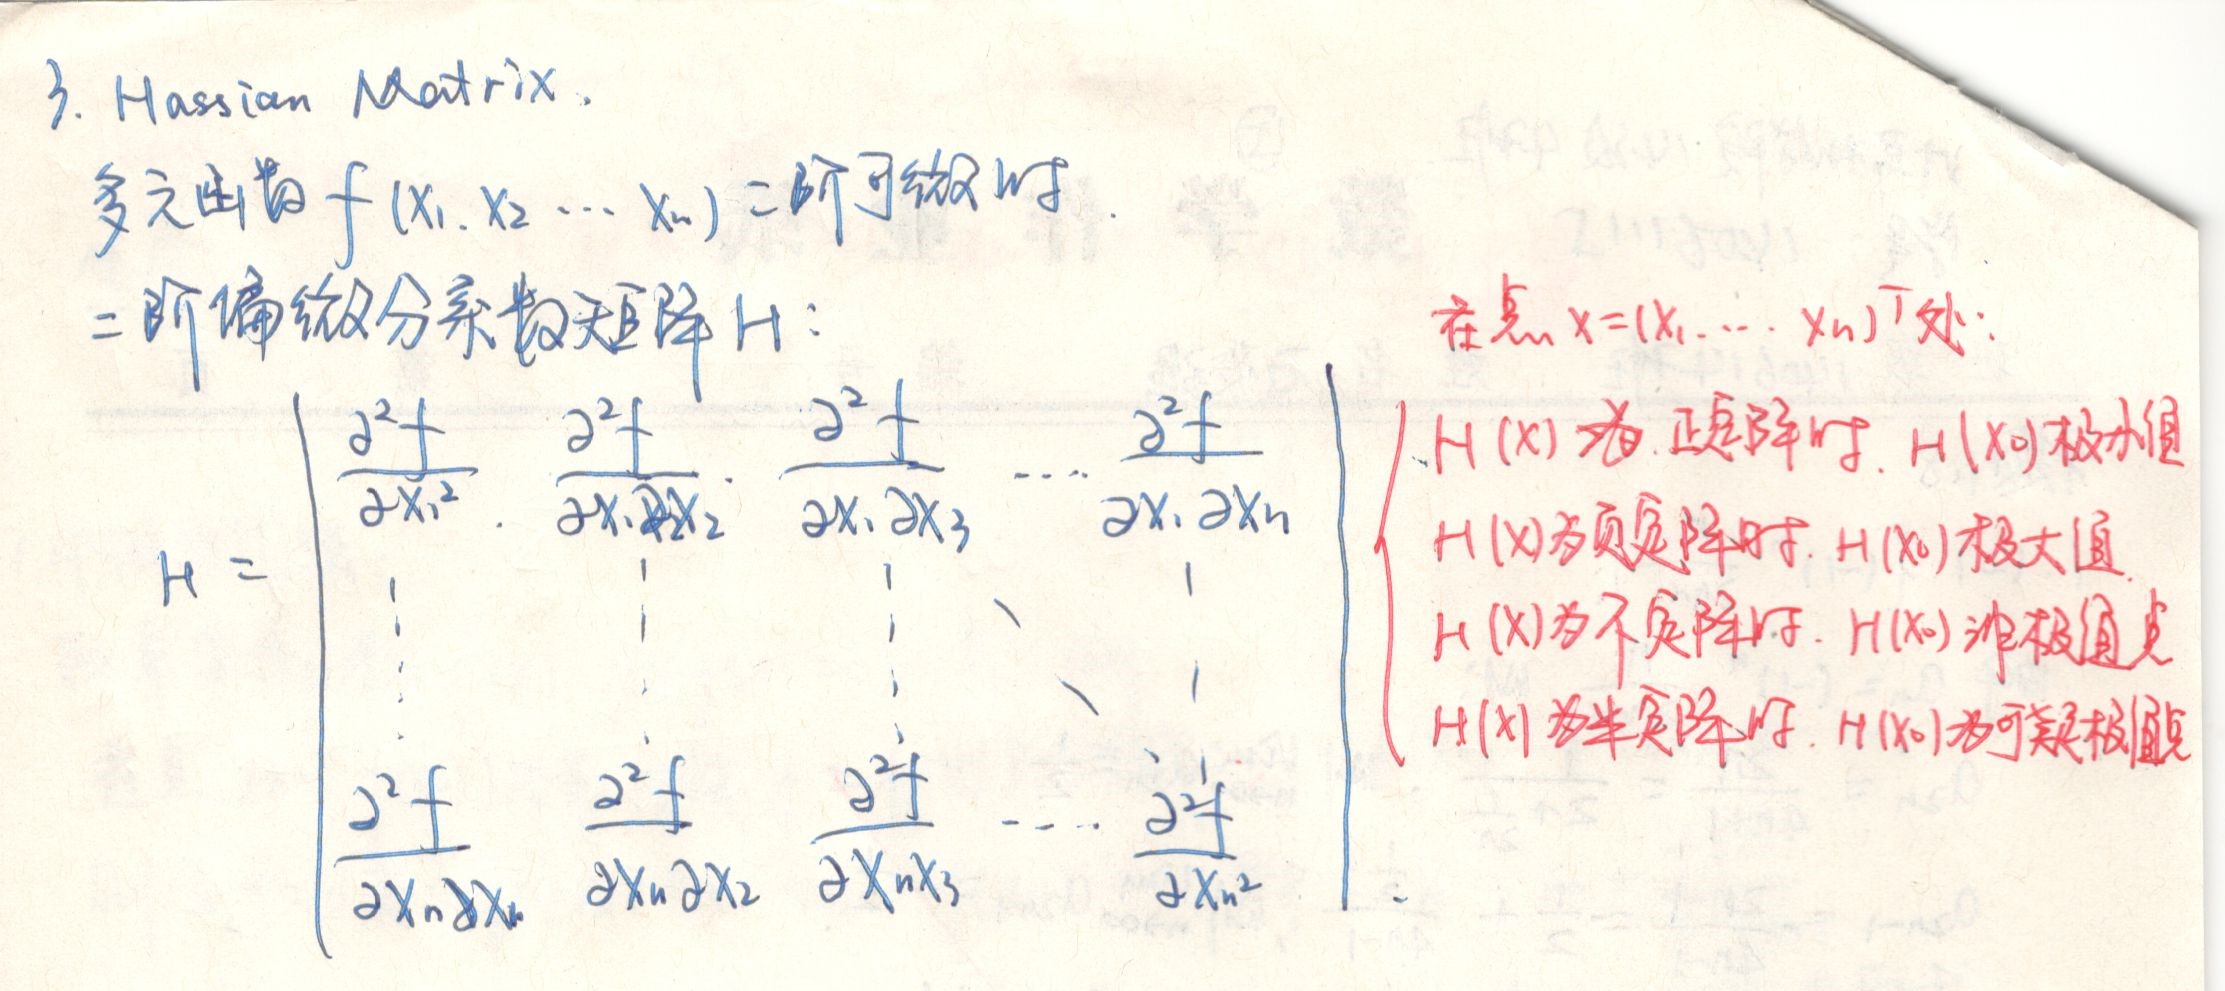 3. Hassian Matrix.
多元函数 f(x₁. x₂ ··· xₙ) 二阶可微时.
二阶偏微分系数矩阵 H:
H = | ∂²f/∂x₁² . ∂²f/∂x₁∂x₂ . ∂²f/∂x₁∂x₃ ···· ∂²f/∂x₁∂xₙ |
∂²f/∂xₙ∂xₙ ∂²f/∂xₙ∂x₂ ∂²f/∂xₙx₃ ···· ∂²f/∂xₙ²
在点 x=(x₁. ··· xₙ)ᵀ处:
H(x) 为正定阵时. H(x₀) 极小值
H(x)为负定阵时. H(x₀) 极大值.
H(x)为不定阵时. H(x₀) 非极值点
H(x)为半定阵时. H(x₀)为可疑极值点